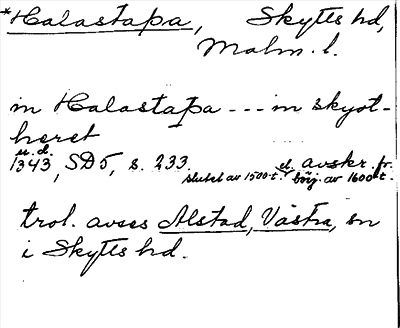 *Halastapa, Skytts hd,
Malm. l.
in Halastapa --- in skyot-
heret
u.d.
1343, SD5, s. 233. avskr. fr.
slutet av 1500-t. el. börj. av 1600-t.
trol. avses Alstad, Västra, sn
i Skytts hd.